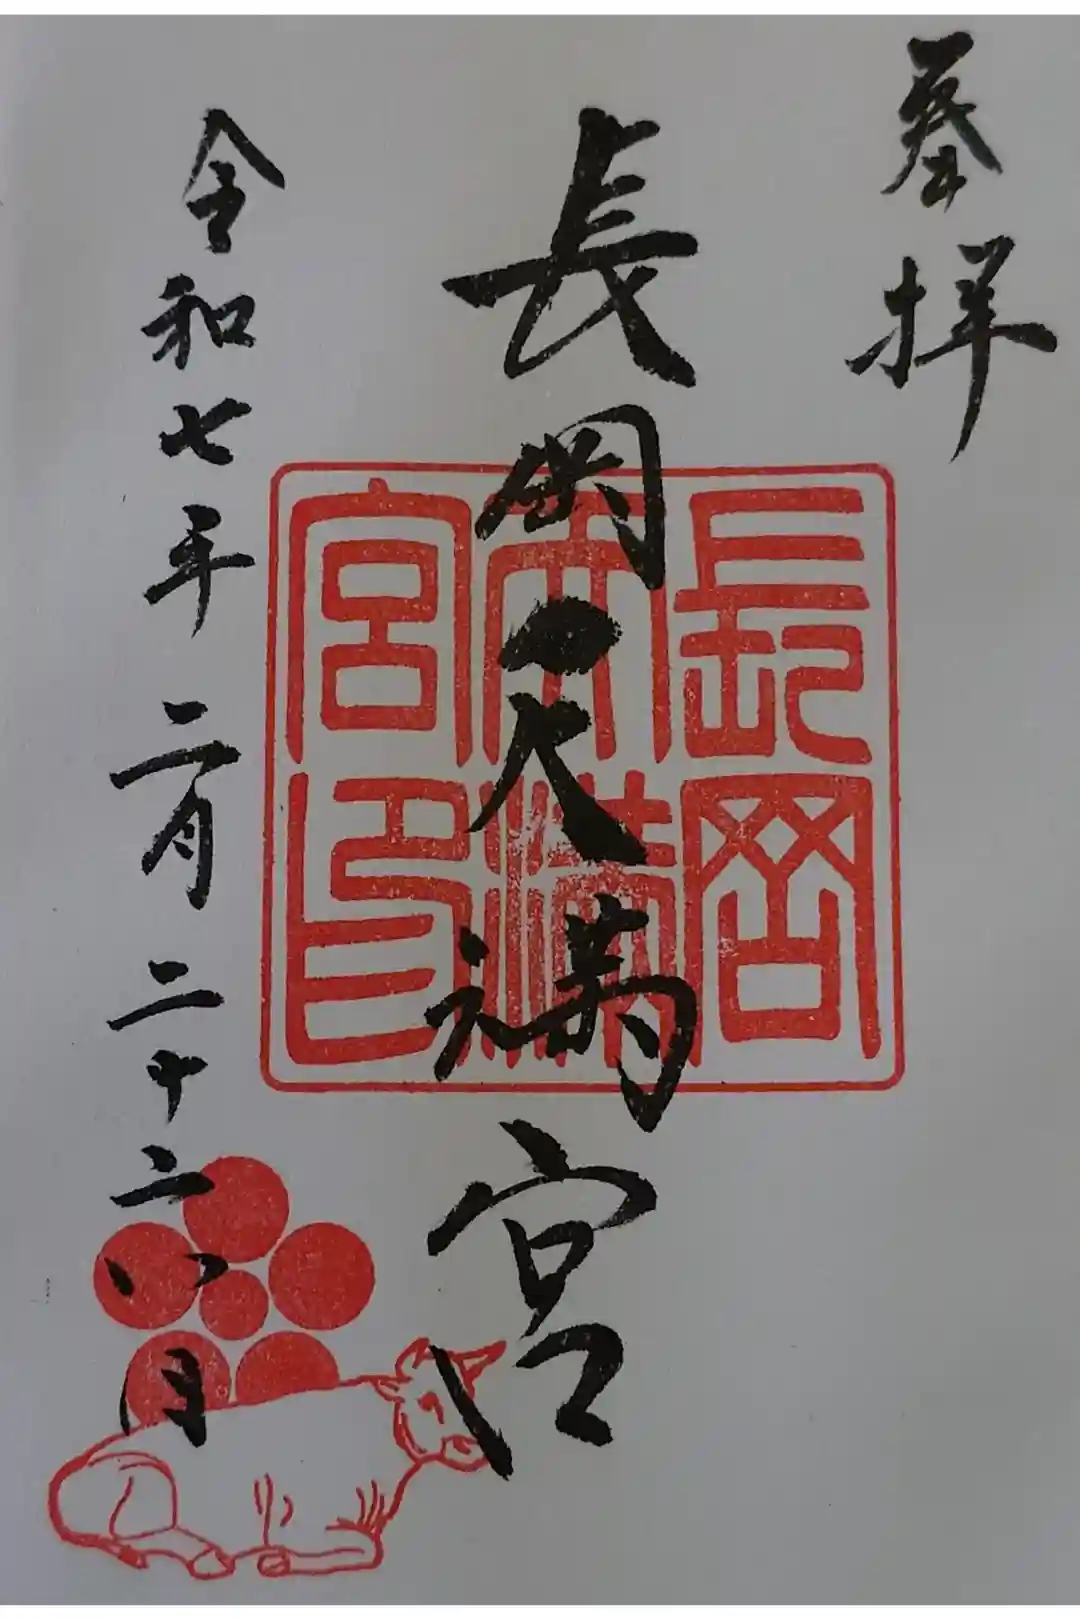 奉拝
長岡天満宮
令和七年二月二十六日
長岡
天満
宮印